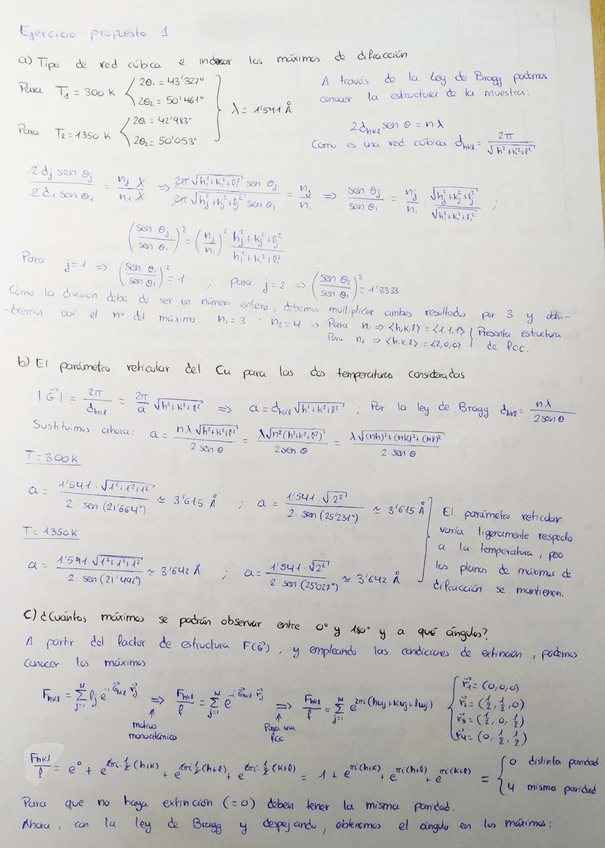 Ejercicio propuesto 1
a) Tipo de red cúbica e indexar los máximos de difracción
Para T₁ = 300 K { 2θ₁ = 43'327° 2θ₂ = 50'461°
Para T₂ = 1350 K { 2θ₁ = 42'983° 2θ₂ = 50'053° } λ = 1'541 Å
A través de la ley de Bragg podemos
conocer la estructura de la muestra:
2d_hkl sen θ = nλ
Como es una red cúbica d_hkl = 2π / √(h²+k²+l²)
2 d_j sen θ_j / 2 d_1 sen θ_1 = n_j λ / n_1 λ ⇒ 2π √(h_i²+k_i²+l_i²) sen θ_j / 2π √(h_j²+k_j²+l_j²) sen θ_i = n_j / n_i ⇒ sen θ_j / sen θ_i = n_j / n_i √(h_j²+k_j²+l_j²) / √(h_i²+k_i²+l_i²) ;
(sen θ_j / sen θ_i)² = (n_j / n_i)² (h_j²+k_j²+l_j²) / (h_i²+k_i²+l_i²)
Para j = 1 ⇒ (sen θ₁ / sen θ₁)² = 1 ; para j = 2 ⇒ (sen θ₂ / sen θ₁)² = 1'3333
Como la división debe de ser un número entero, debemos multiplicar ambos resultados por 3 y obten-
-dremos así el nº del máximo. n₁ = 3 ; n₂ = 4 ⇒ Para n₁ ⇒ ⟨h,k,l⟩ = ⟨1,1,1⟩ } Presenta estructura
Para n₂ ⇒ ⟨h,k,l⟩ = ⟨2,0,0⟩ de fcc.
b) El parámetro reticular del Cu para las dos temperaturas consideradas
|G⃗| = 2π / d_hkl = 2π / a √(h²+k²+l²) ⇒ a = d_hkl √(h²+k²+l²) ; Por la ley de Bragg: d_hkl = nλ / 2 sen θ
Sustituimos ahora: a = nλ √(h²+k²+l²) / 2 sen θ = λ √(n²(h²+k²+l²)) / 2 sen θ = λ √((nh)²+(nk)²+(nl)²) / 2 sen θ
T = 300 K
a = 1'541 · √(1²+1²+1²) / 2 sen (21'664°) ≃ 3'615 Å ; a = 1'541 · √(2²) / 2 sen (25'231°) ≃ 3'615 Å
T = 1350 K
a = 1'541 √(1²+1²+1²) / 2 sen (21'492°) ≃ 3'642 Å ; a = 1'541 · √(2²) / 2 sen (25'027°) ≃ 3'642 Å
El parámetro reticular
varía ligeramente respecto
a la temperatura, pero
los planos de máximos de
difracción se mantienen.
c) ¿Cuántos máximos se podrán observar entre 0° y 180° y a qué ángulos?
A partir del factor de estructura F(G⃗), y empleando las condiciones de extinción, podemos
conocer los máximos
F_hkl = Σ_{j=1}^{N} f_j e^{-i G⃗_hkl r⃗_j} ⇒ F_hkl / f = Σ_{j=1}^{N} e^{-i G⃗_hkl r⃗_j} ⇒ F_hkl / f = Σ_{j=1}^{N} e^{2πi(hu_j+kv_j+lw_j)} { r⃗₁ = (0,0,0)
r⃗₂ = (½, ½, 0)
r⃗₃ = (½, 0, ½)
r⃗₄ = (0, ½, ½)
motivo
monoatómico
Para una
fcc
F_hkl / f = e⁰ + e^{2πi·½(h+k)} + e^{2πi·½(h+l)} + e^{2πi·½(k+l)} = 1 + e^{πi(h+k)} + e^{πi(h+l)} + e^{πi(k+l)} = { 0 distinta paridad
4 misma paridad
Para que no haya extinción (=0) deben tener la misma paridad.
Ahora, con la ley de Bragg y despejando, obtenemos el ángulo en los máximos: